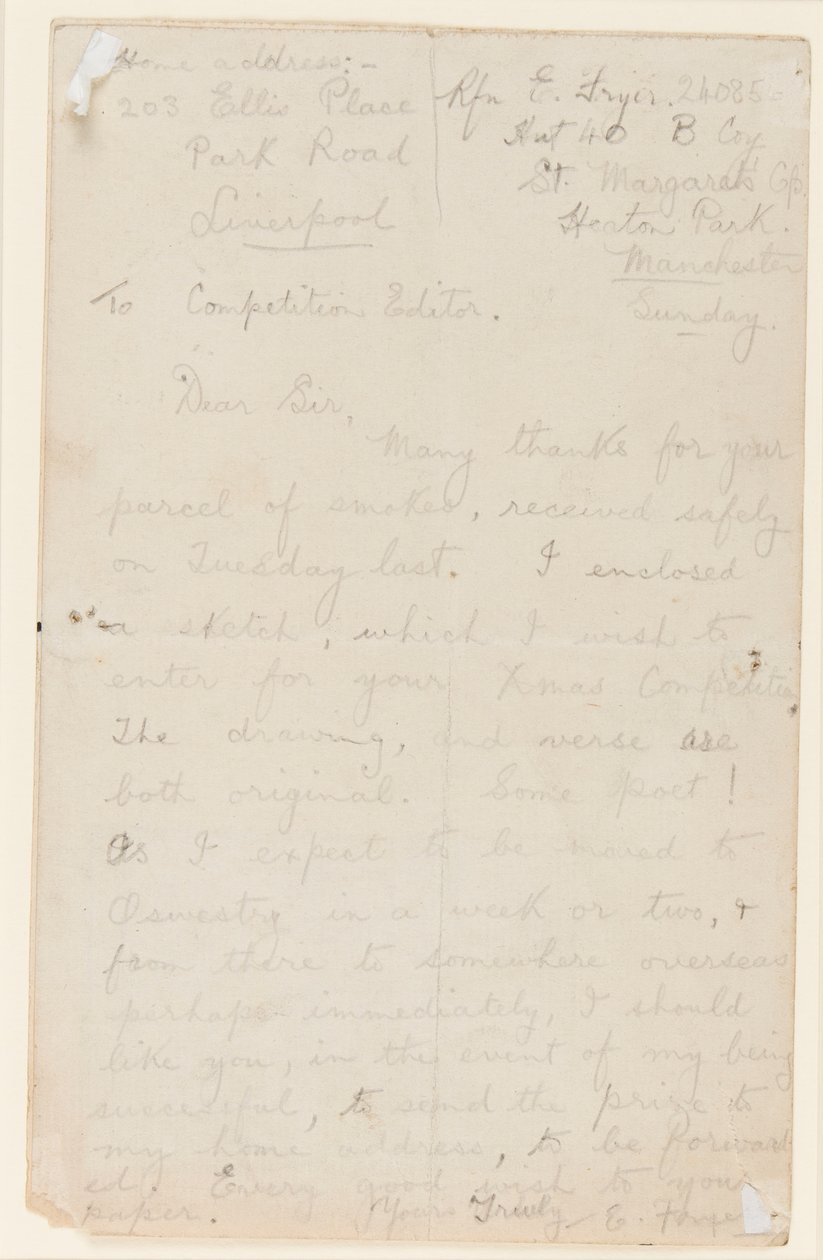 Home address:-
203 Ellis Place
Park Road
Liverpool
Rfn E. Fryer. 24085
Hut 40 B Coy
St. Margarets
Heaton Park.
Manchester
Sunday.
To Competition Editor.
Dear Sir,
Many thanks for your
parcel of smokes, received safely
on Tuesday last. I enclosed
a sketch, which I wish to
enter for your Xmas Competition
The drawing, and verse are
both original. Some poet!
As I expect to be moved to
Oswestry in a week or two, &
from there to somewhere overseas
perhaps immediately, I should
like you, in the event of my being
successful, to send the prize to
my home address, to be forward
ed. Every good wish to your
paper. Yours Truly E. Fryer